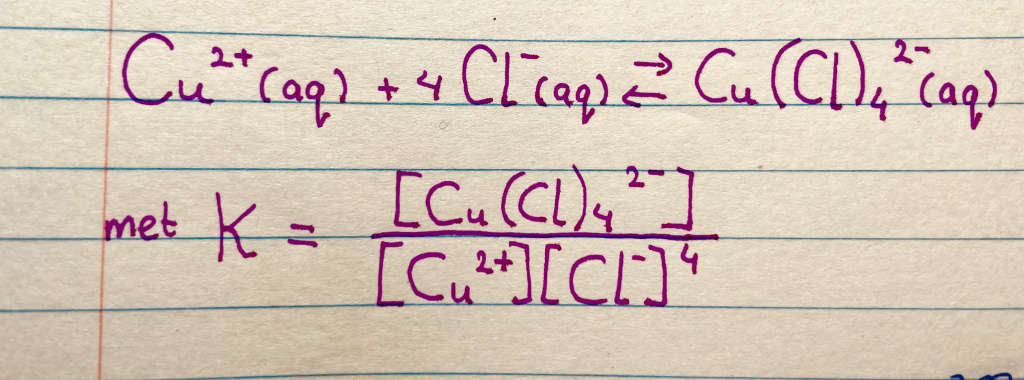 Cu²⁺(aq) + 4 Cl⁻(aq) ⇄ Cu(Cl)₄²⁻(aq)
met K = [Cu(Cl)₄²⁻] / [Cu²⁺][Cl⁻]⁴